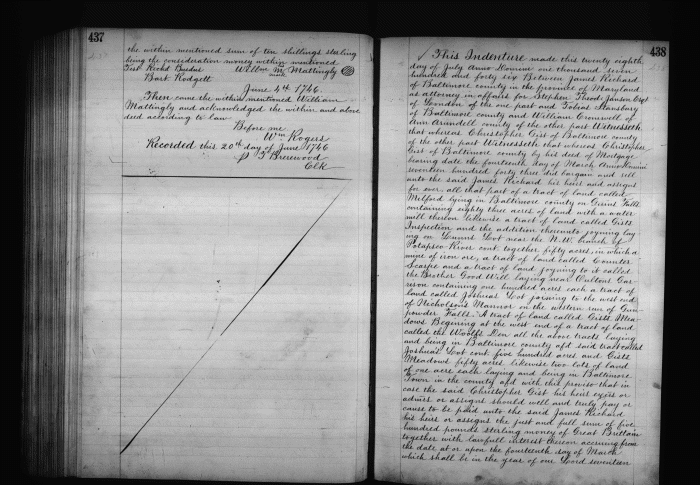 437
the within mentioned sum of ten shillings sterling
being the consideration money within mentioned
Test Richd William M Mattingly
mark
Bart Rodgett
June 4th 1746.
Then came the within mentioned William
Mattingly and acknowledged the within and above
deed according to law
Before me
Wm Rogers
Recorded this 20th day of June 1746
Brerewood
Clk
438
This Indenture made this twenty eighth
day of July Anno Domini one thousand seven
hundred and forty six Between James Richard
of Baltimore county in the province of Maryland
as attorney in affairs for Stephen Theodr Janson Esqr
of London of the one part and Tobias Stansbury
of Baltimore county and William Cromwell of
Ann Arundell county of the other part Witnesseth
that whereas Christopher Gist of Baltimore county
of the other part Witnesseth that whereas Christopher
Gist of Baltimore county by his deed of Mortgage
bearing date the fourteenth day of March Anno Domini
seventeen hundred forty three did bargain and sell
unto the said James Richard his heirs and assigns
for ever all that part of a tract of land called
Milford lying in Baltimore county on Gwins Falls
containing eighty three acres of land with a water
mill thereon likewise a tract of land called Gists
Inspection and the addition thereunto joyning lay
ing on Lunns Lott near the N.W. branch of
Patapsco River cont. together fifty acres, in which a
mine of iron ore, a tract of land called Counter
Scarpe and a tract of land joyning to it called
the Brother Good Will laying near Oultons Gar
rison containing one hundred acres each a tract of
land called Joshuas Lot joining to the west end
of Nicholsons Mannor on the western run of Gun
powder Falls. A tract of land called Gists Mea-
dows Begining at the west end of a tract of land
called the Woolfs Den all the above tracts laying
and being in Baltimore county afd said tract called
Joshuas Lott cont. five hundred acres and Gists
Meadows fifty acres likewise two lots of land
of one acre each laying and being in Baltimore
Town in the county afd with this proviso that in
case the said Christopher Gist his heirs exrs or
admrs or assigns should well and truly pay or
cause to be paid unto the said James Richard
his heirs or assigns the just and full sum of five
hundred pounds sterling money of Great Brittain
together with lawfull interest thereon accruing from
the date at or upon the fourteenth day of March
which shall be in the year of our Lord seventeen